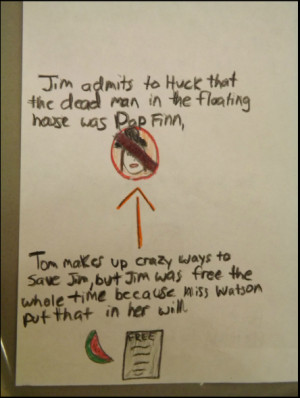 Jim admits to Huck that
the dead man in the floating
house was Pap Finn,
Tom makes up crazy ways to
Save Jim, but Jim was free the
whole time because Miss Watson
put that in her will.
FREE